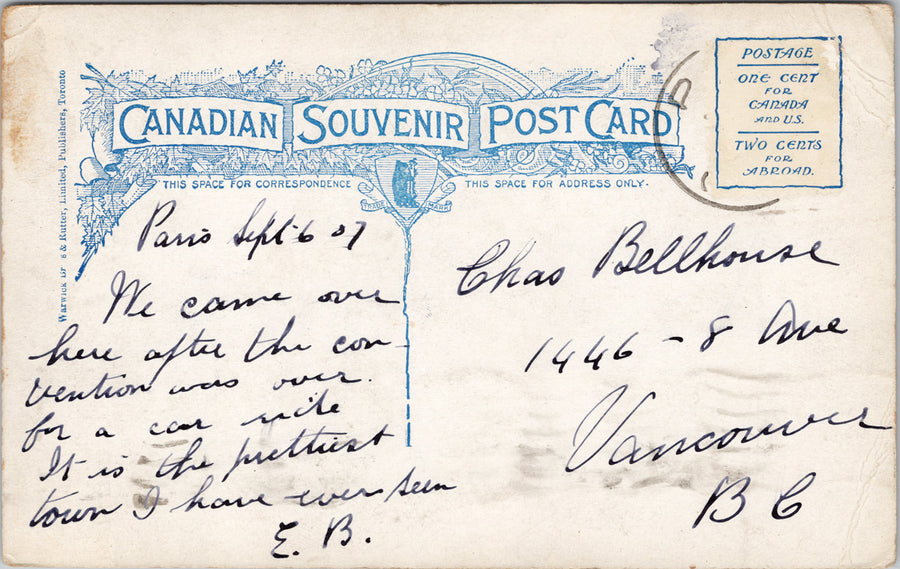 CANADIAN SOUVENIR POST CARD
THIS SPACE FOR CORRESPONDENCE
THIS SPACE FOR ADDRESS ONLY.
TRADE MARK
POSTAGE
ONE CENT
FOR
CANADA
AND U.S.
TWO CENTS
FOR
ABROAD.
Warwick Br s & Rutter, Limited, Publishers, Toronto
Paris Sept 6 07
We came over
here after the con-
vention was over.
for a car ride
It is the prettiest
town I have ever seen
E. B.
Chas Bellhouse
1446 - 8 Ave
Vancouver
B C